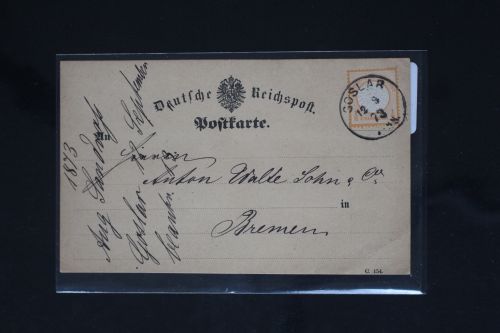 Deutsche Reichspost.
Postkarte.
GOSLAR
12 9
73
An
Anton Walte Sohn & Co
in
Bremen
C. 154.
1873
Goslar
September